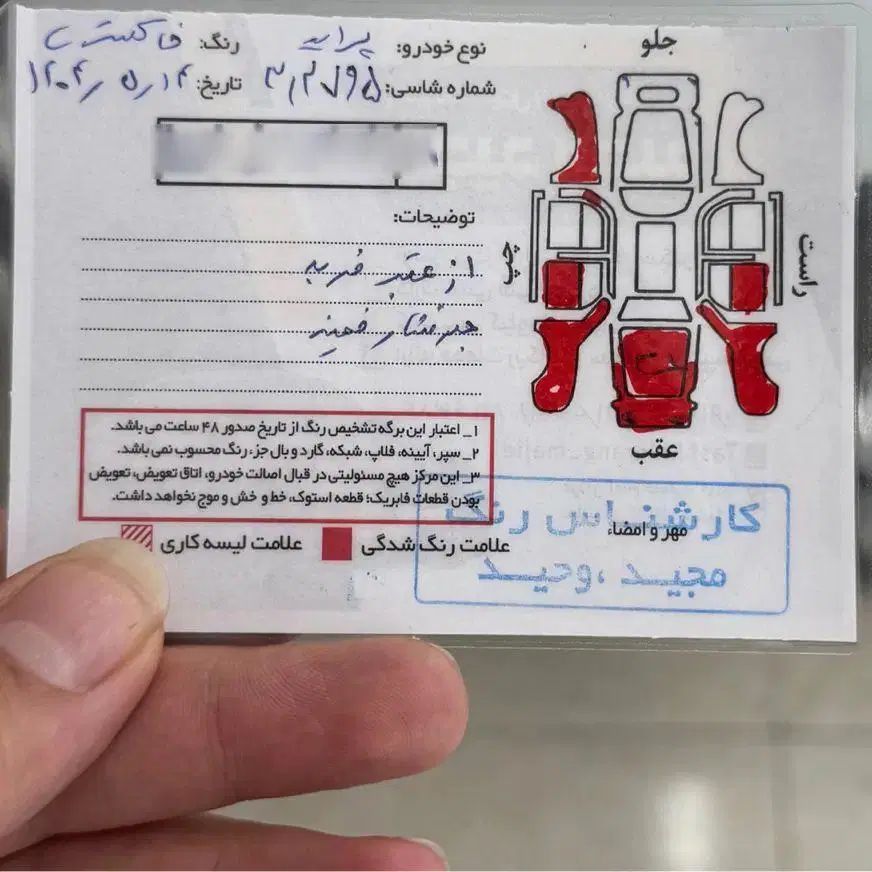 نوع خودرو: پراید رنگ: خاکستری
شماره شاسی: ۳۱۳۷۹۵ تاریخ: ۱۴۰۴/۵/۱۴
توضیحات:
از عقب ضربه
جلو
چپ
راست
عقب
۱_ اعتبار این برگه تشخیص رنگ از تاریخ صدور ۴۸ ساعت می باشد.
۲_ سپر، آیینه، فلاپ، شبکه، گارد و بال جزء رنگ محسوب نمی باشد.
۳_ این مرکز هیچ مسئولیتی در قبال اصالت خودرو، اتاق تعویض، تعویض
بودن قطعات فابریک؛ قطعه استوک، خط و خش و موج نخواهد داشت.
علامت رنگ شدگی علامت لیسه کاری
مهر و امضاء
کارشناس رنگ
مجید ،وحید